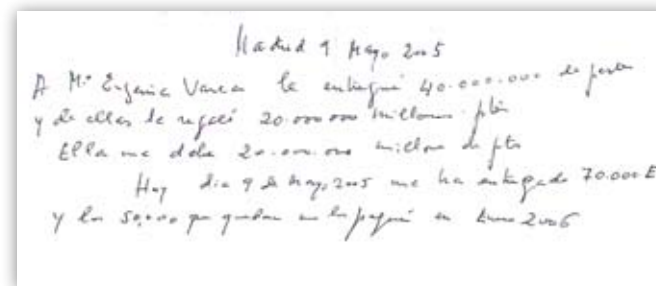 Madrid 9 Mayo 2005
A Mª Eugenia le entregué 40.000.000 de pesetas
y de ellas le regalé 20.000.000 millones pts
Ella me debe 20.000.000 millones de pts
Hoy dia 9 de Mayo, 2005 me ha entregado 70.000 E
y los 50,000 que quedan me los pagará en Enero 2006